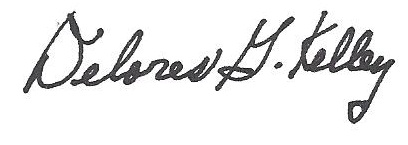 Delores G. Kelley